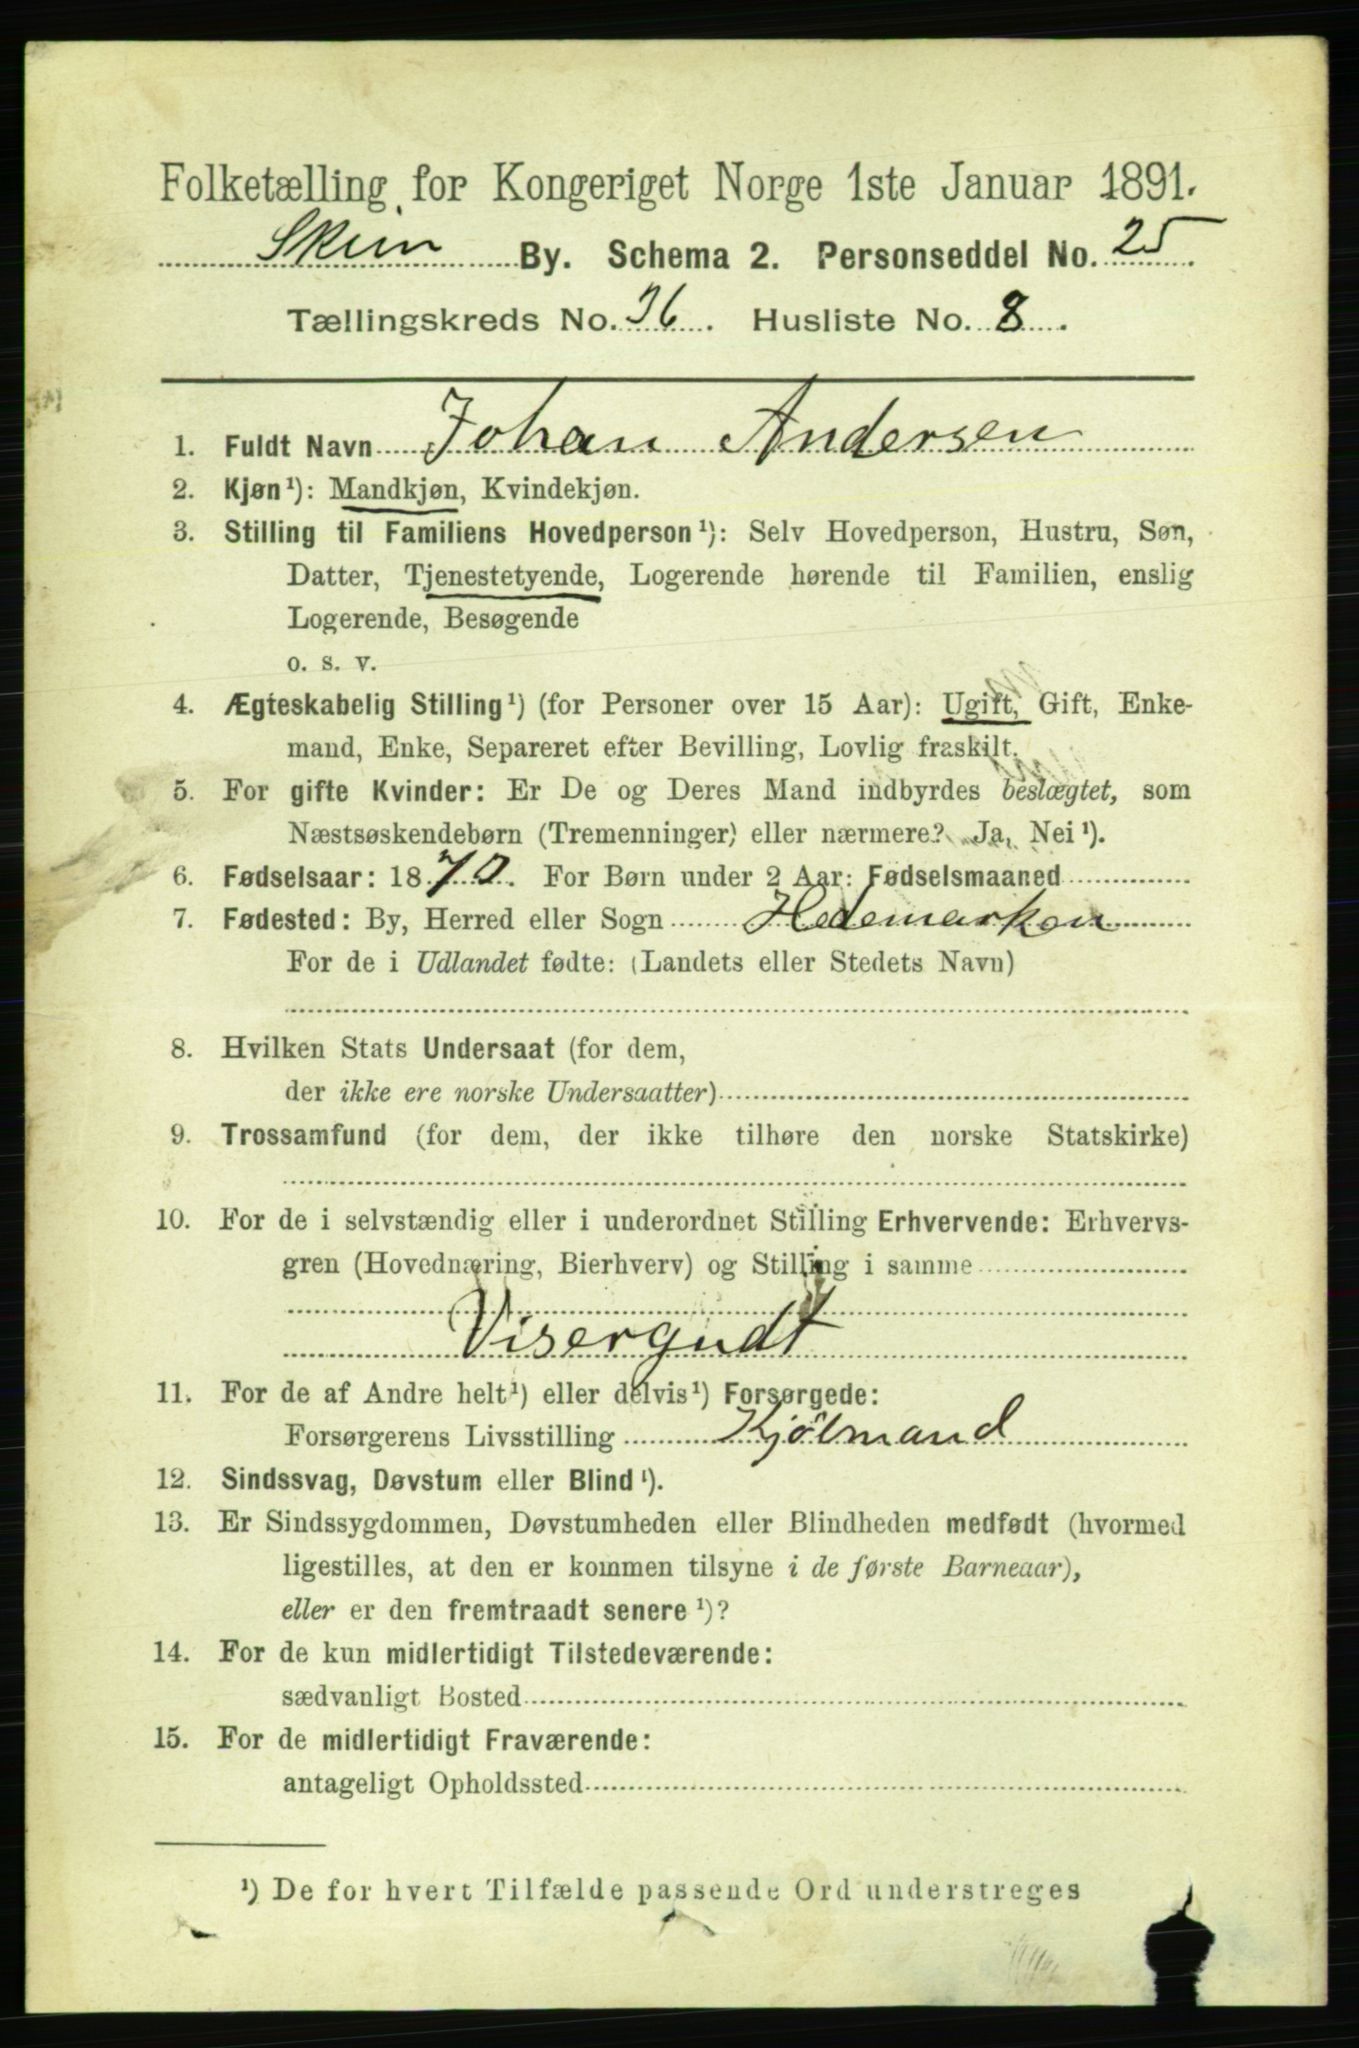 Folketælling for Kongeriget Norge 1ste Januar 1891.
Skien By. Schema 2. Personseddel No. 25
Tællingskreds No. 36. Husliste No. 8.
1. Fuldt Navn Johan Andersen
2. Kjøn¹): Mandkjøn, Kvindekjøn.
3. Stilling til Familiens Hovedperson¹): Selv Hovedperson, Hustru, Søn,
Datter, Tjenestetyende, Logerende hørende til Familien, enslig
Logerende, Besøgende
o. s. v.
4. Ægteskabelig Stilling¹) (for Personer over 15 Aar): Ugift, Gift, Enke-
mand, Enke, Separeret efter Bevilling, Lovlig fraskilt.
5. For gifte Kvinder: Er De og Deres Mand indbyrdes beslægtet, som
Næstsøskendebørn (Tremenninger) eller nærmere? Ja, Nei¹).
6. Fødselsaar: 1870. For Børn under 2 Aar: Fødselsmaaned
7. Fødested: By, Herred eller Sogn Hedemarken
For de i Udlandet fødte: (Landets eller Stedets Navn)
8. Hvilken Stats Undersaat (for dem,
der ikke ere norske Undersaatter)
9. Trossamfund (for dem, der ikke tilhøre den norske Statskirke)
10. For de i selvstændig eller i underordnet Stilling Erhvervende: Erhvervs-
gren (Hovednæring, Bierhverv) og Stilling i samme
Visergudt
11. For de af Andre helt¹) eller delvis¹) Forsørgede:
Forsørgerens Livsstilling Kjöbmand
12. Sindssvag, Døvstum eller Blind¹).
13. Er Sindssygdommen, Døvstumheden eller Blindheden medfødt (hvormed
ligestilles, at den er kommen tilsyne i de første Barneaar),
eller er den fremtraadt senere¹)?
14. For de kun midlertidigt Tilstedeværende:
sædvanligt Bosted
15. For de midlertidigt Fraværende:
antageligt Opholdssted
¹) De for hvert Tilfælde passende Ord understreges